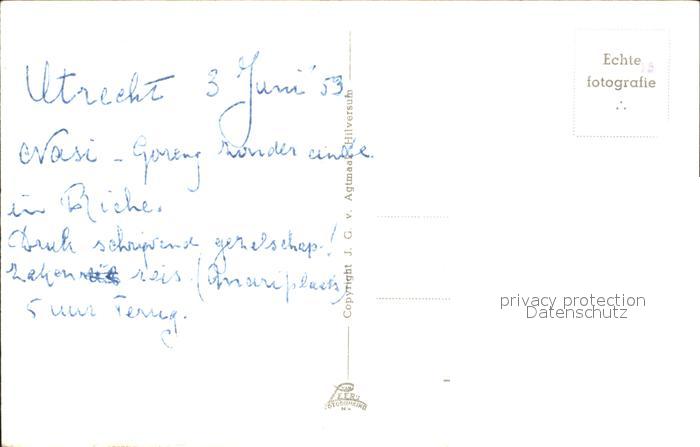 Utrecht 3 Juni '53.
Nasi - Goreng zonder einde.
in Riche.
Druk schrijvend gezelschap!
zaken reis.
5 uur Terug.
Echte
fotografie
Copyright J. G. v. Agtmaal Hilversum
privacy protection
Datenschutz